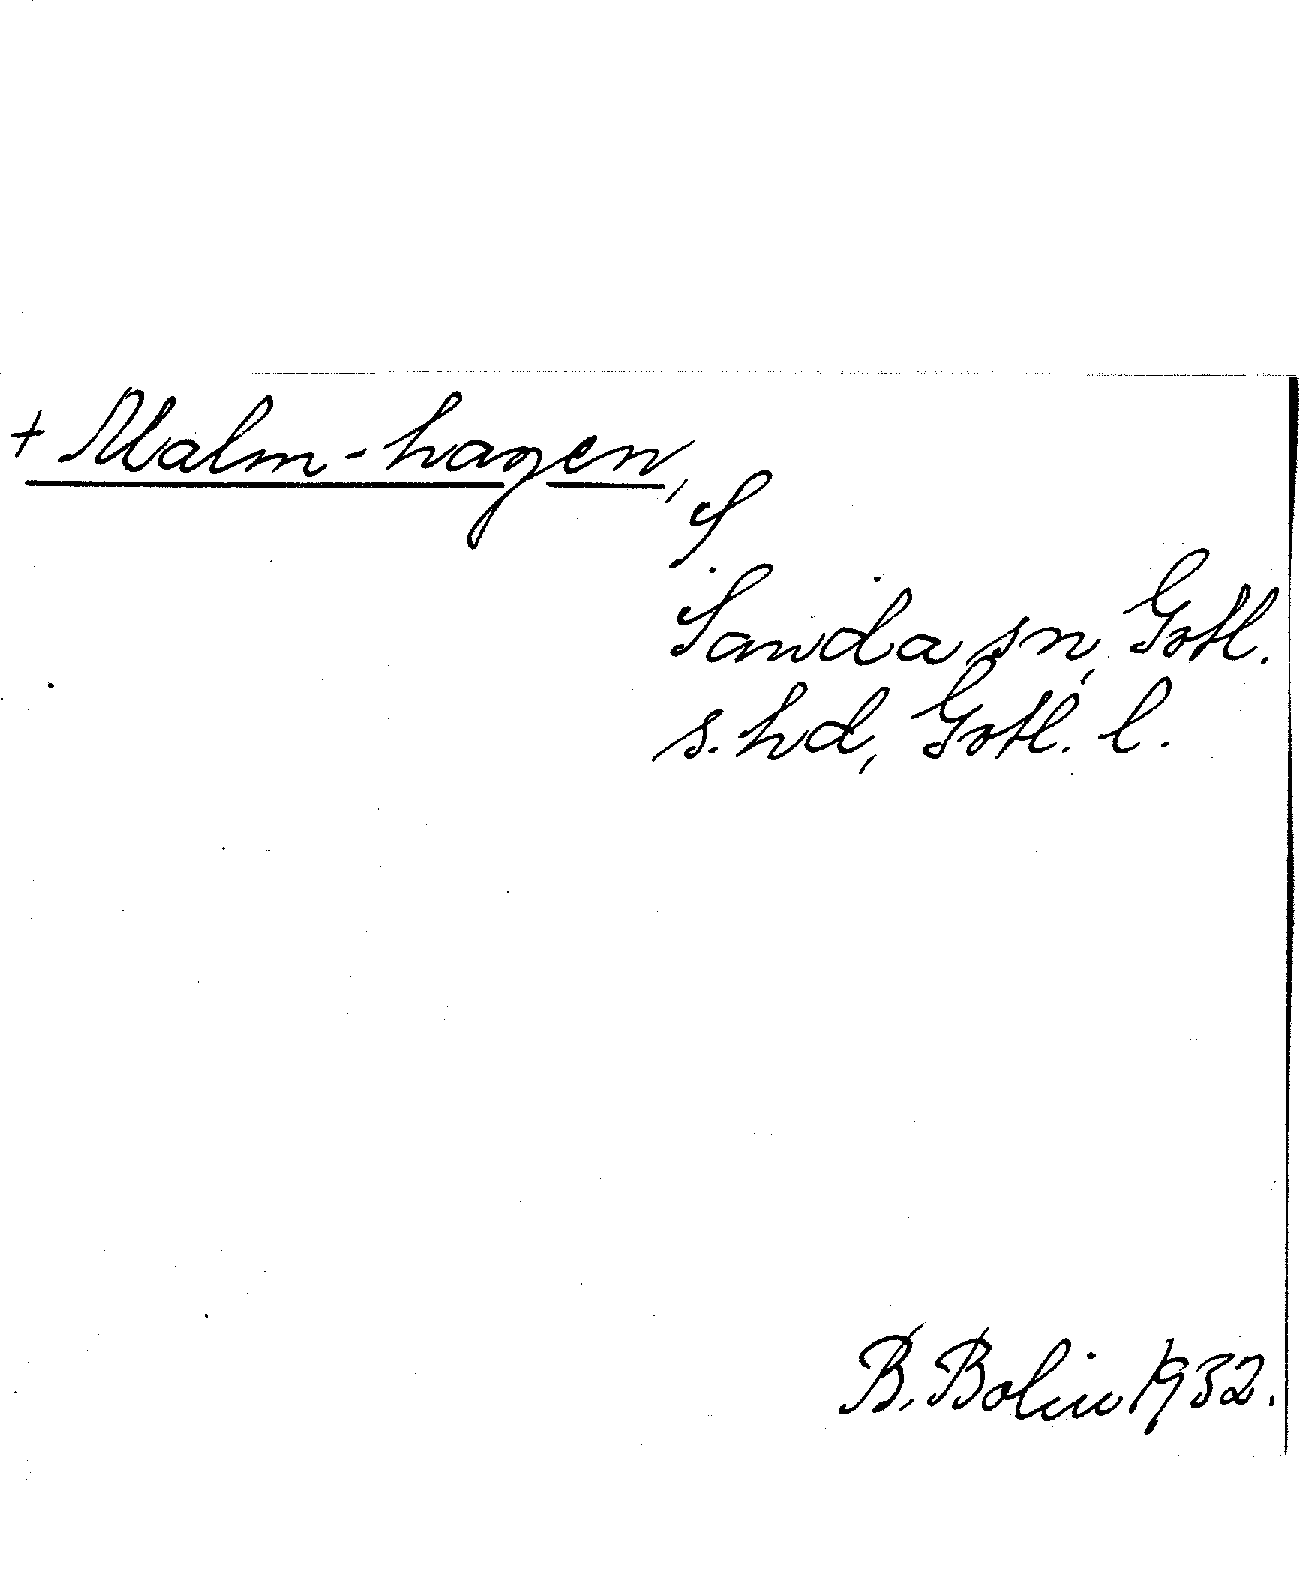 + Malm-hagen,
S
Sanda sn, Gotl.
s. hd, Gotl. l.
B. Bolin 1932.